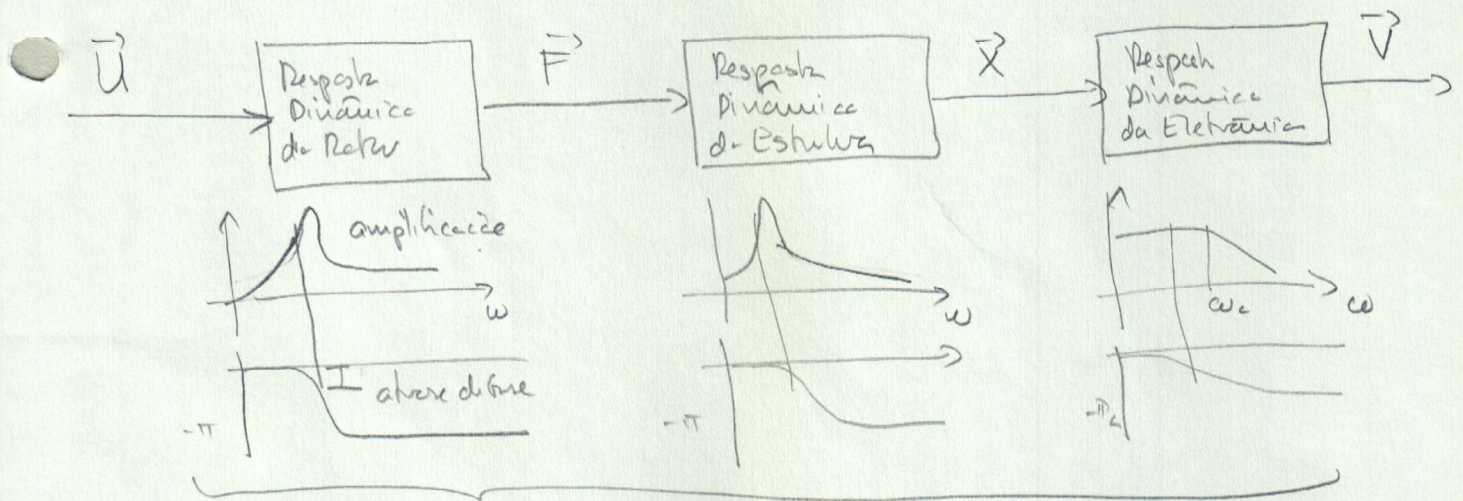 U
Resposta
Dinâmica
do Rotor
F
Resposta
Dinâmica
da Estrutura
X
Resposta
Dinâmica
da Eletrônica
V
amplificação
ω
ω
ωc
ω
-π
atraso de fase
-π